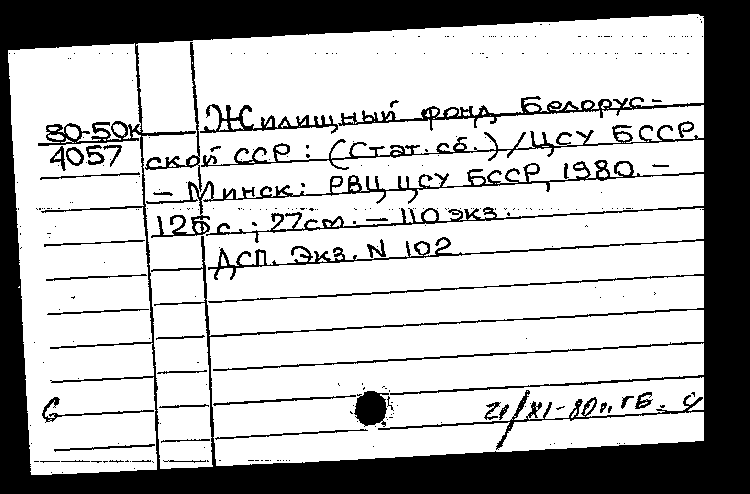 80-50к Жилищный фонд Белорус-
4057 ской ССР: (Стат. сб.) / ЦСУ БССР.
— Минск: РВЦ ЦСУ БССР, 1980. —
125 с.; 27 см. — 110 экз.
ДСП. Экз. N 102
6
21/XI-80г. ГБ.